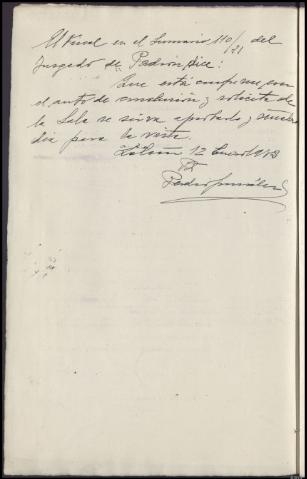 El Fiscal en el Sumario 110/21 del
Juzgado de Padrón, dice:
Que está conforme con
el auto de conclusión y solicita de
la Sala se sirva aprobarlo y señalar
día para la vista.
12 Enero
Pedro González